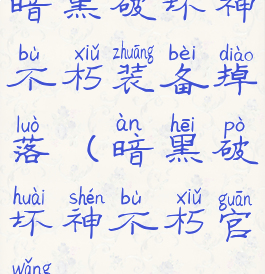 暗黑破坏神
bù xiǔ zhuāng bèi diào
不朽装备掉
luò àn hēi pò
落（暗黑破
huài shén bù xiǔ guān
坏神不朽官
wǎng